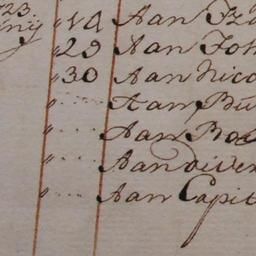 23.
" 14 Aan Iz
" 29 Aan Joh
" 30 Aan Nico
" .... Aan Bu
" .... Aan Bo
" .... Aan diver
" .... Aan Capit